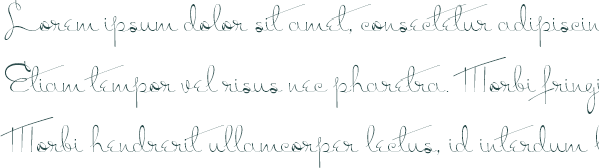 Lorem ipsum dolor sit amet, consectetur adipiscin
Etiam tempor vel risus nec pharetra. Morbi fringi
Morbi hendrerit ullamcorper lectus, id interdum l